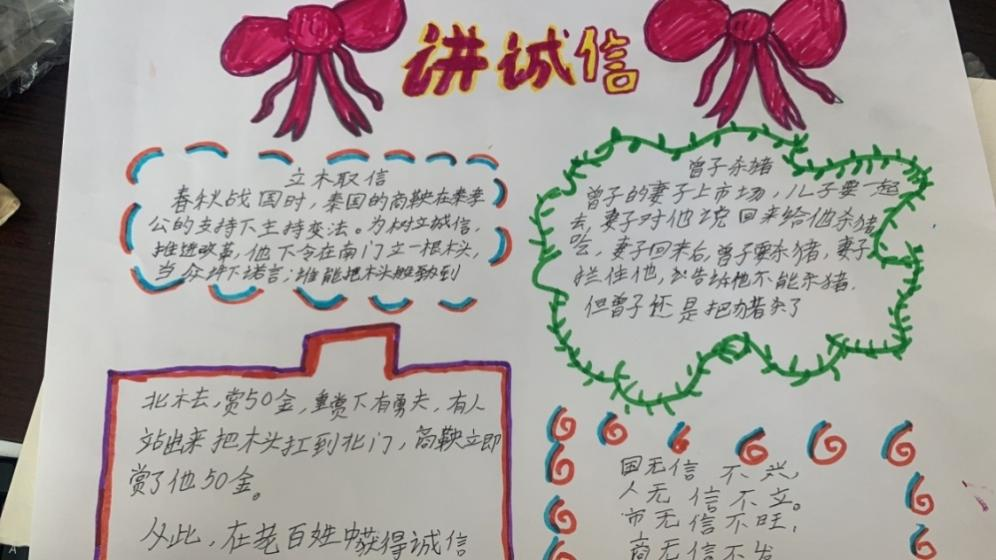 讲诚信
立木取信
春秋战国时，秦国的商鞅在秦孝
公的支持下主持变法。为树立诚信，
推进改革，他下令在南门立一根木头，
当众许下诺言；谁能把木头搬動到
北木去，赏50金，重赏下有勇夫，有人
站出来把木头扛到北门，商鞅立即
赏了他50金。
从此，在老百姓中获得诚信
曾子杀猪
曾子的妻子上市场，儿子要一起
去，妻子对他说回来给他杀猪
吃，妻子回来后，曾子要杀猪，妻子
拦住他，告诉他不能杀猪.
但曾子还是把猪杀了
国无信不兴，
人无信不立。
市无信不旺，
商无信不发